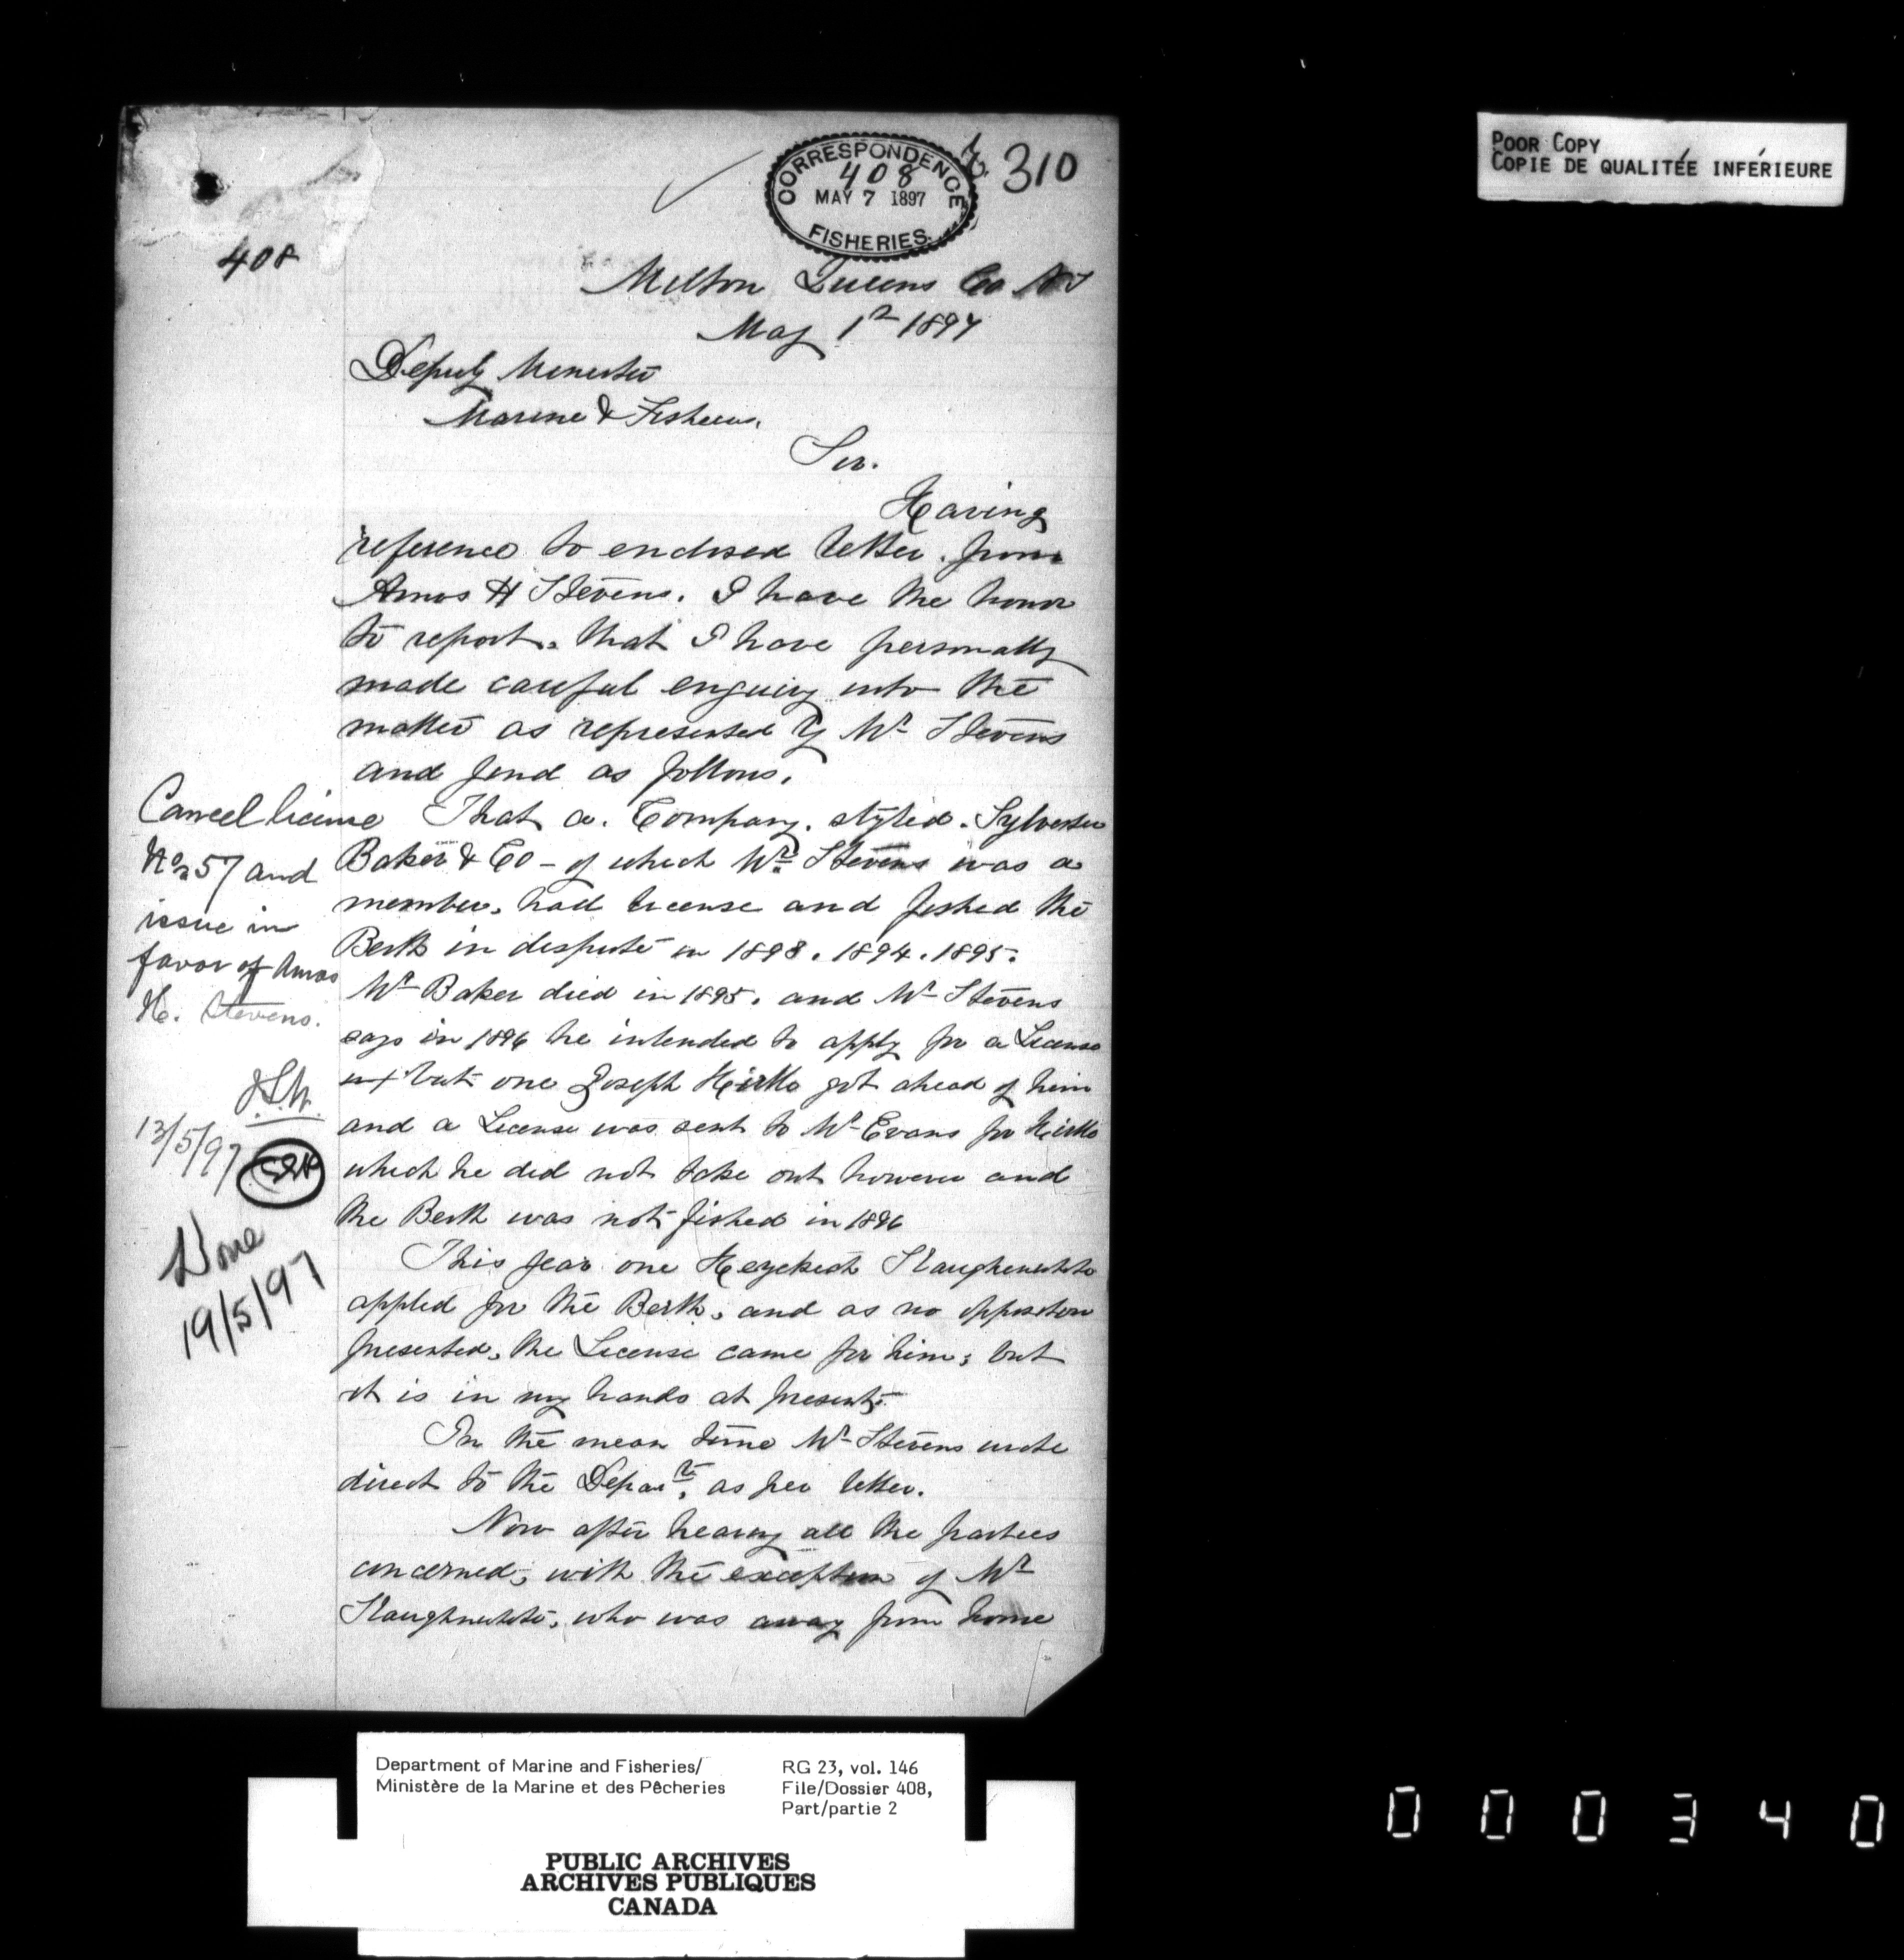 POOR COPY
COPIE DE QUALITÉE INFÉRIEURE
310
CORRESPONDENCE
408
MAY 7 1897
FISHERIES
408
Milton Queens Co NS
May 1st 1897
Deputy Minister
Marine & Fisheries.
Sir.
Having
reference to enclosed letter. from
Amos H Stevens. I have the honor
to report. that I have personally
made careful enquiry into the
matter as represented by Mr Stevens
and find as follows.
That a. Company. styled. Sylvester
Baker & Co - of which Mr. Stevens was a
member. had license and fished the
Berth in dispute in 1893. 1894. 1895.
Mr Baker died in 1895. and Mr Stevens
says in 1896 he intended to apply for a License
but one Joseph Hirtle got ahead of him
and a License was sent to Mr Evans for Hirtle
which he did not take out however and
the Berth was not fished in 1896
This year one Hezekiah Slaughenwhite
applied for the Berth, and as no opposition
presented, the License came for him; but
it is in my hands at present.
In the mean time Mr Stevens wrote
direct to the Depart, as per letter.
Now after hearing all the parties
concerned, with the exception of Mr
Slaughnwhite, who was away from home
Cancel license
No 57 and
issue in
favor of Amos
H. Stevens.
13/5/97
Done
19/5/97
Department of Marine and Fisheries/
Ministère de la Marine et des Pêcheries
RG 23, vol. 146
File/Dossier 408,
Part/partie 2
PUBLIC ARCHIVES
ARCHIVES PUBLIQUES
CANADA
000340